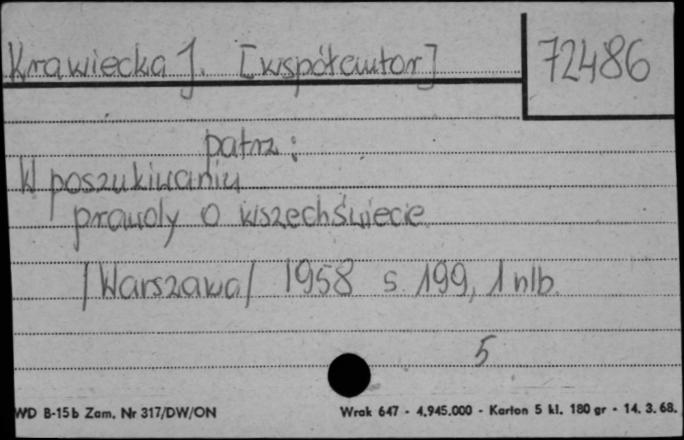 Krawiecka J. [współautor]
72486
patrz:
W poszukiwaniu
prawdy o wszechświecie
/Warszawa/ 1958 s. 199, 1 nlb.
5
WD B-15b Zam. Nr 317/DW/ON
Wrak 647 - 4.945.000 - Karton 5 kl. 180 gr - 14. 3. 68.